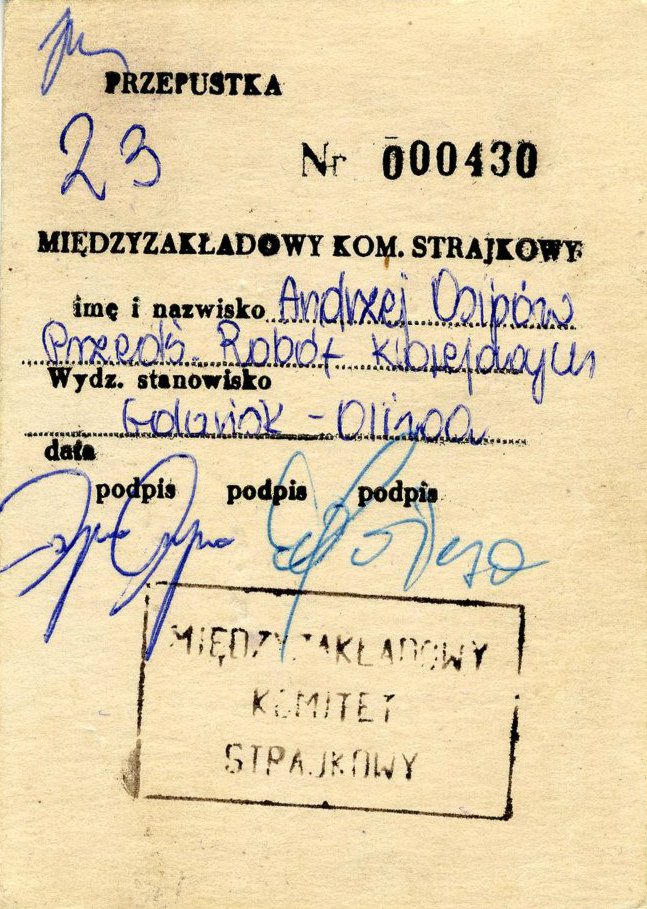 PRZEPUSTKA
23
Nr 000430
MIĘDZYZAKŁADOWY KOM. STRAJKOWY
imię i nazwisko Andrzej Osipów
Przeds. Robót Kolejowych
Wydz. stanowisko
Gdańsk - Oliwa
data
podpis podpis podpis
MIĘDZYZAKŁADOWY
KOMITET
STRAJKOWY